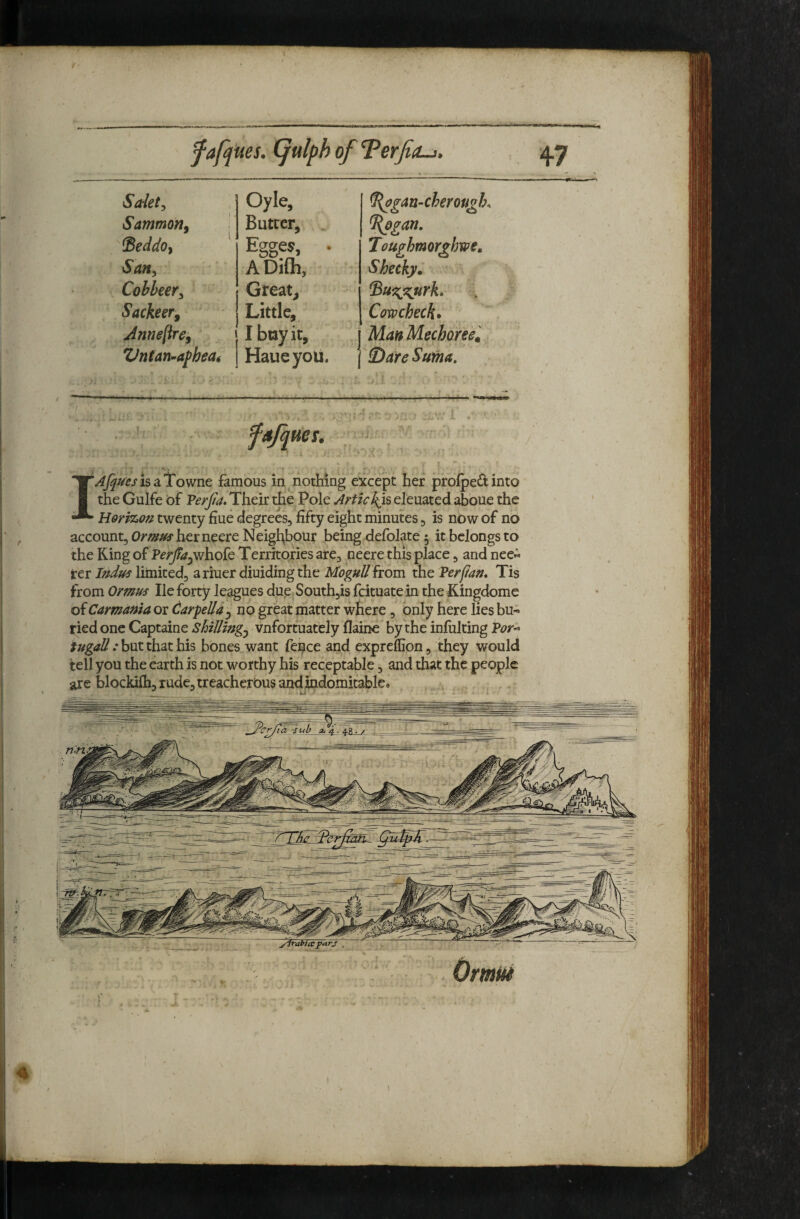 Jaſques. Gulph of Perſia.     47
Salet,     Oyle,     Rogan-cherough.
Sammon,     Butter,     Rogan.
Beddo,     Egges,     Toughmorghwe.
San,     A Diſh,     Shecky.
Cobbeer,     Great,     Buzzurk.
Sackeer,     Little,     Cowcheck.
Anneſtre,     I buy it,     Man Mechoree.
Vntan-aphea.     Haue you.     Dare Suma.
Jaſques.
IAſques is a Towne famous in nothing except her proſpect into
the Gulfe of Perſia. Their the Pole Artick is eleuated aboue the
Horizon twenty fiue degrees, fifty eight minutes, is now of no
account, Ormus her neere Neighbour being deſolate; it belongs to
the King of Perſia, whoſe Territories are, neere this place, and nee-
rer Indus limited, a riuer diuiding the Mogull from the Perſian. Tis
from Ormus Ile forty leagues due South, is ſcituate in the Kingdome
of Carmania or Carpella, no great matter where, only here lies bu-
ried one Captaine Shilling, vnfortuately ſlaine by the inſulting Por-
tugall: but that his bones want ſence and expreſſion, they would
tell you the earth is not worthy his receptable, and that the people
are blockiſh, rude, treacherous and indomitable.
Perſia sub
The Perſian Gulph.
Arabiæ pars.
Ormus